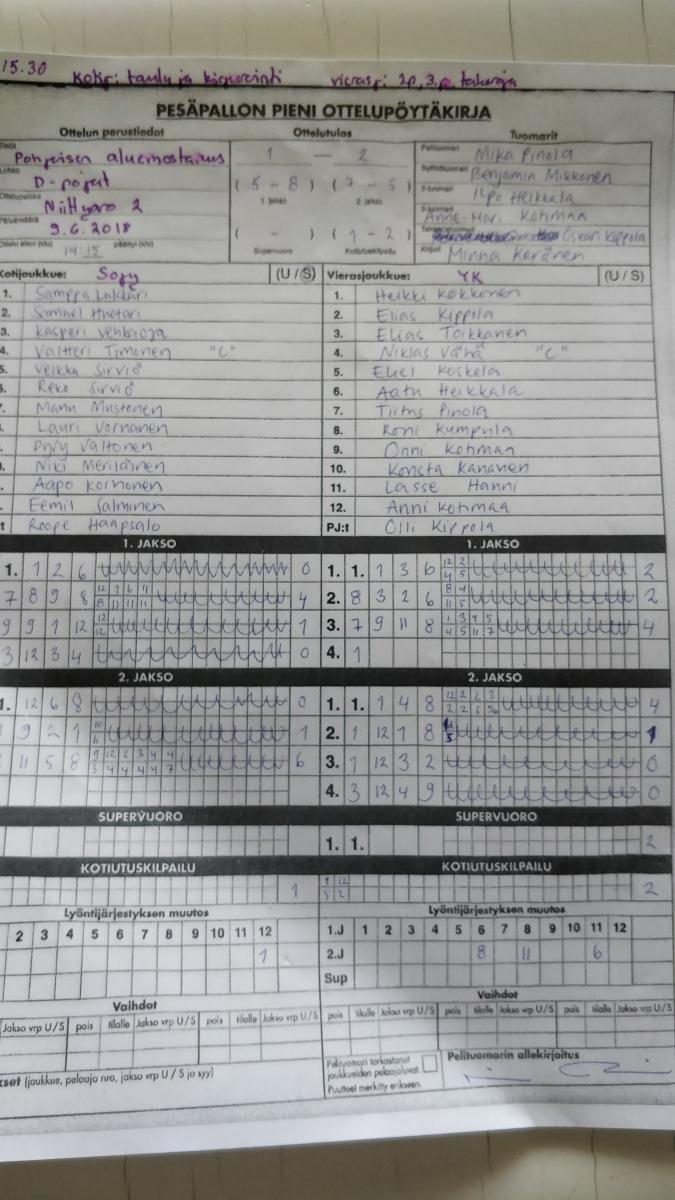 15.30 Kotip: taulu ja kirjurointi vierasp: 2p, 3.p, takaraja
PESÄPALLON PIENI OTTELUPÖYTÄKIRJA
Ottelun perustiedot Ottelutulos Tuomarit
Pohjoisen aluemestaruus 1 — 2 Pelituomari Mika Pinola
D-pojat ( 5 - 8 ) ( 7 - 5 ) Benjamin Mikkonen
1. jakso 2. jakso
Niittyaro 2 Ilpo Heikkala
9.6.2018 ( - ) ( 1 - 2 ) Anne-Mari Kotimaa
14:15 Supervuoro Kotiutuskilpailu Oskari Kippola
Minna Keränen
Kotijoukkue: Sojy (U/S) Vierasjoukkue: YK (U/S)
1. Samppa Lukkari 1. Heikki Kokkonen
2. Samuel Huotari 2. Elias Kippola
3. Kasperi Vehkaoja 3. Elias Toikkanen
4. Valtteri Timonen "C" 4. Niklas Vähä "C"
5. Veikka Sirviö 5. Eliel Koskela
6. Reko Sirviö 6. Aatu Heikkala
7. Manu Mustonen 7. Tiitus Pinola
Lauri Vornanen 8. Roni Kumpula
Pyry Valtonen 9. Onni Kotimaa
Niki Meriläinen 10. Konsta Kananen
Aapo Korhonen 11. Lasse Hanni
Eemil Salminen 12. Anni Kotimaa
Roope Haapsalo PJ:t Olli Kippola
1. JAKSO 1. JAKSO
1. 1 2 6 0 1. 1. 1 3 6 12 2 4 5 2
7 8 9 8 4 2. 8 3 2 6 8 4 11 5 2
9 9 1 12 12 12 1 3. 7 9 11 8 1 3 4 5 4 5 11 7 4
3 12 3 4 0 4. 1
2. JAKSO 2. JAKSO
1. 12 6 8 0 1. 1. 1 4 8 4
9 2 1 1 2. 1 12 1 8 1
11 5 8 9 12 2 3 4 4 3 4 4 4 4 7 6 3. 1 12 3 2 0
4. 3 12 4 9 0
SUPERVUORO SUPERVUORO
1. 1. 2
KOTIUTUSKILPAILU KOTIUTUSKILPAILU
1 1 12 5 2 2
Lyöntijärjestyksen muutos Lyöntijärjestyksen muutos
2 3 4 5 6 7 8 9 10 11 12 1.J 1 2 3 4 5 6 7 8 9 10 11 12
1 2.J 8 11 6
Sup
Vaihdot Vaihdot
Jakso vrp U/S pois tilalle Jakso vrp U/S pois tilalle Jakso vrp U/S pois tilalle Jakso vrp U/S pois tilalle Jakso vrp U/S pois tilalle Jakso vrp U/S
Pelituomari tarkastanut joukkueiden pelaajaluvat. Pelituomarin allekirjoitus
Puutteet merkitty erikseen.
(joukkue, pelaaja nro, jakso vrp U / S ja syy)